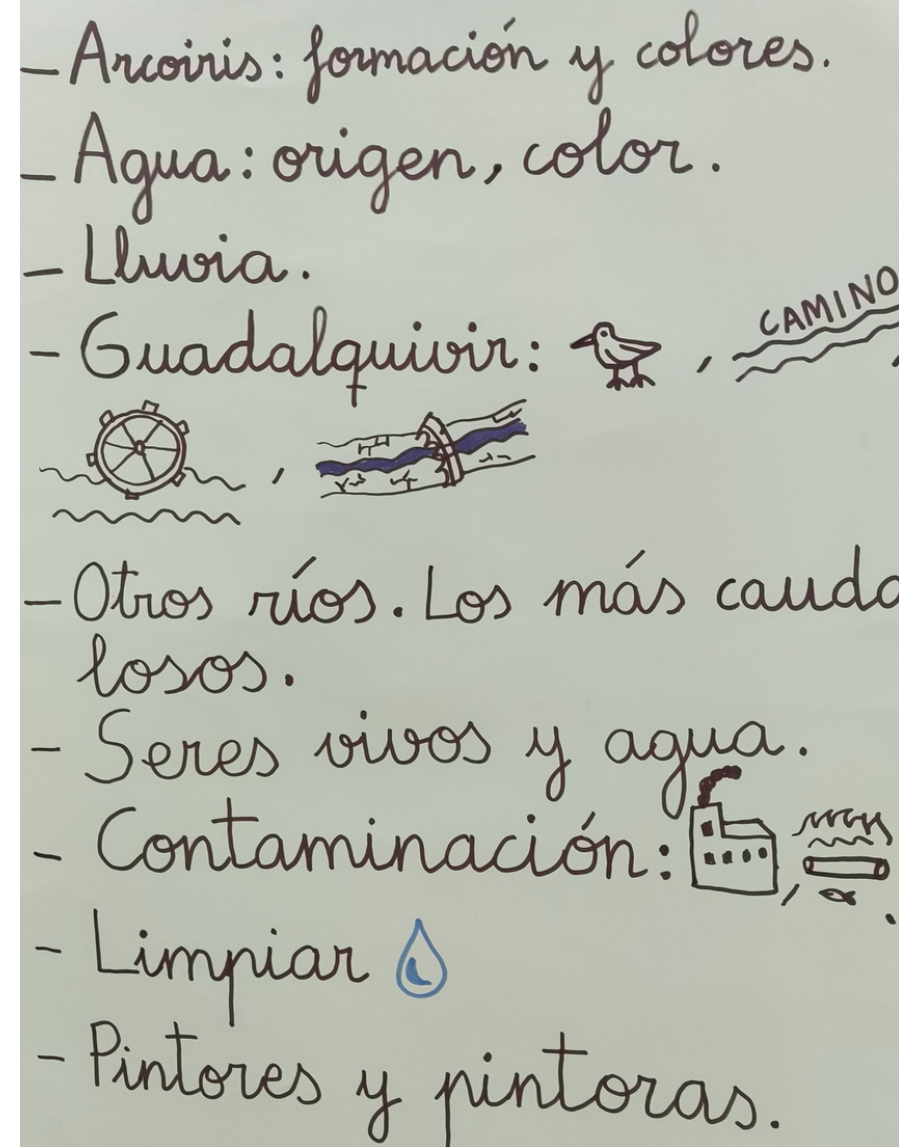 - Arcoiris: formación y colores.
- Agua: origen, color.
- Lluvia.
- Guadalquivir: , CAMINO
,
- Otros ríos. Los más cauda
losos.
- Seres vivos y agua.
- Contaminación: , .
- Limpiar
- Pintores y pintoras.